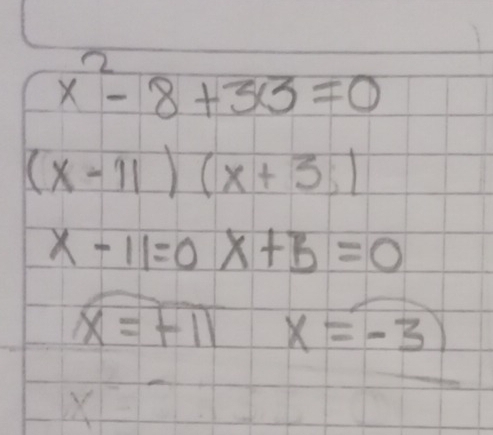 x² - 8 + 33 = 0
(x - 11) (x + 3)
x - 11 = 0 x + 3 = 0
x = +11 x = -3
x